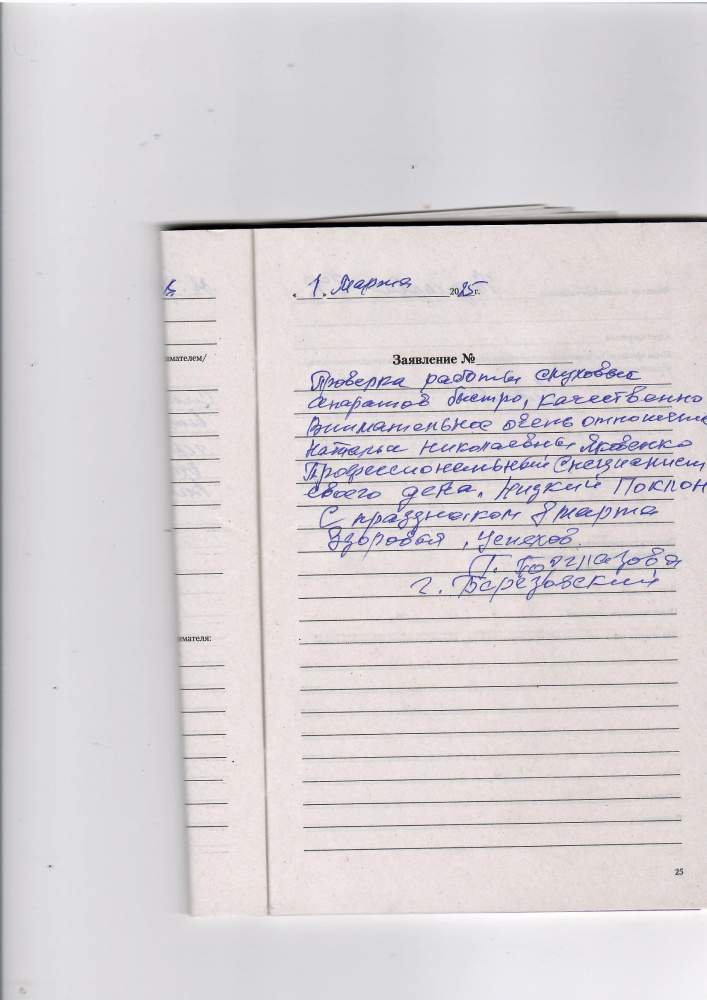 имателем/
имателя:
„ 1 „ Марта 2025 г.
Заявление №
Проверка работы слуховых
апаратов быстро, качественно
Внимательное очень отношение
Натальи Николаевны Яковенко
Профессиональный Специалист
своего дела. Низкий Поклон
С праздником 8 марта
Здоровья, успехов.
г. Берёзовский
25